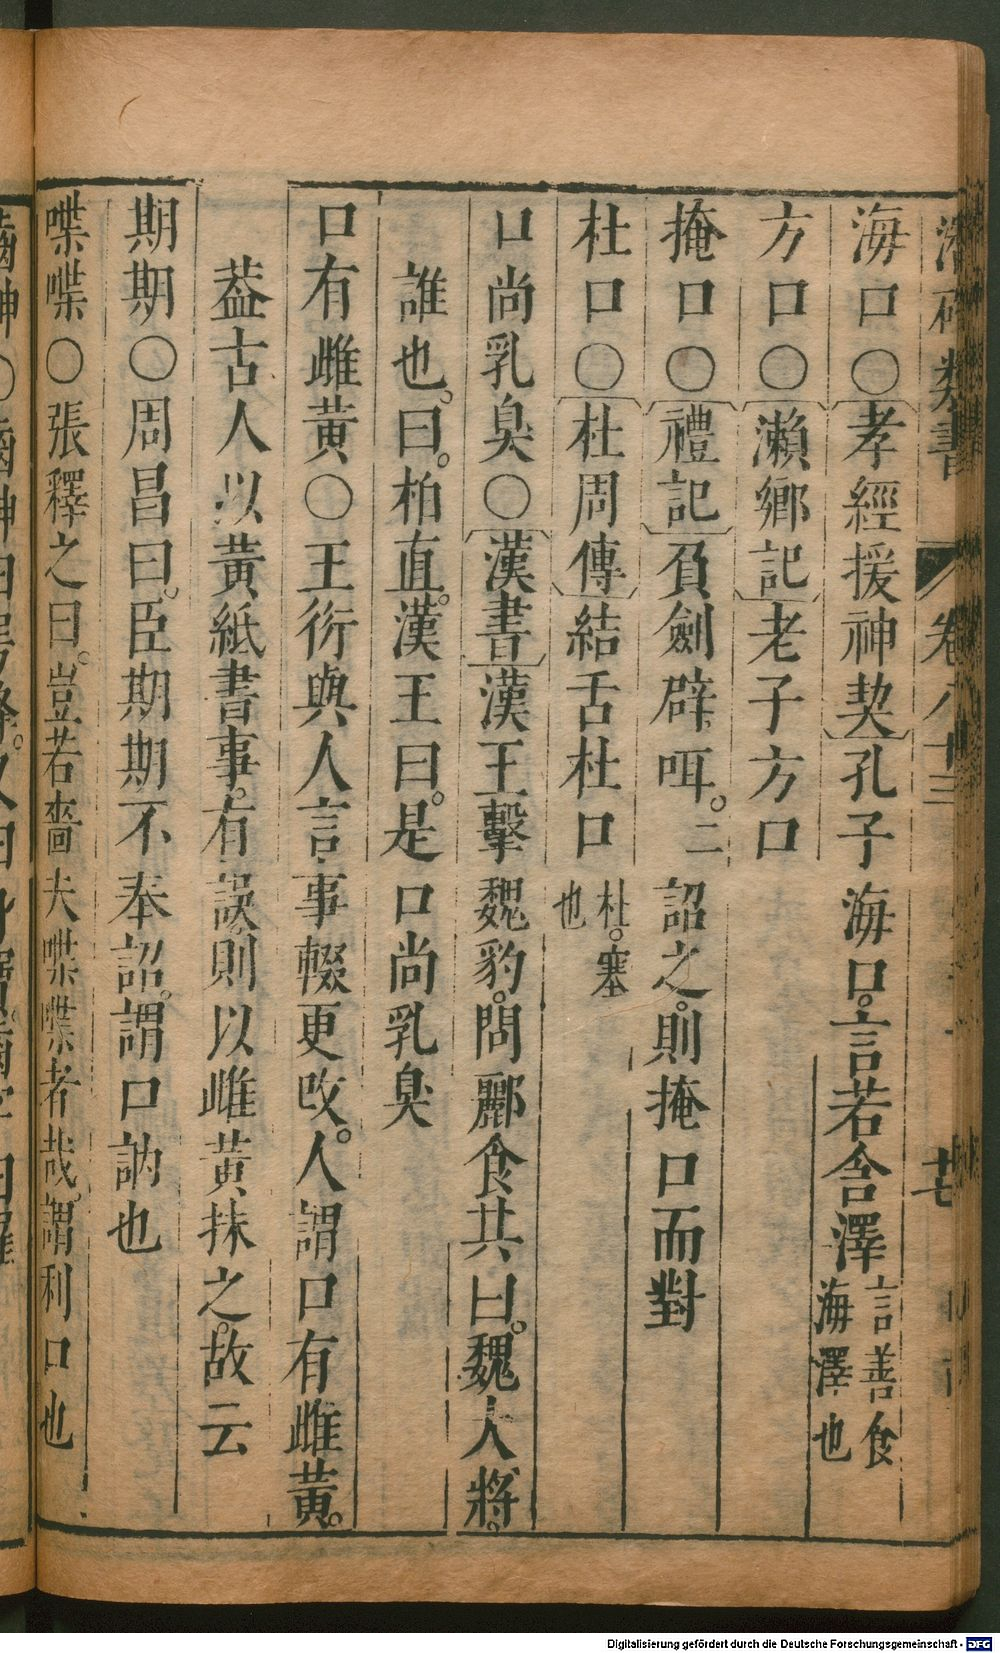 潛確類書 卷八十三
海口○孝經援神契孔子海口。言若含澤言善食海澤也
方口○瀨鄉記老子方口
掩口○禮記負劍辟咡。二詔之。則掩口而對
杜口○杜周傳結舌杜口杜。塞也
口尚乳臭○漢書漢王擊魏豹。問酈食其曰。魏大將。
誰也。曰。柏直。漢王曰。是口尚乳臭
口有雌黃○王衍與人言事輟更改。人謂口有雌黃。
葢古人以黃紙書事。有誤則以雌黃抹之。故云
期期○周昌曰。臣期期不奉詔。謂口訥也
喋喋○張釋之曰。豈若嗇夫喋喋者哉。謂利口也
Digitalisierung gefördert durch die Deutsche Forschungsgemeinschaft - DFG